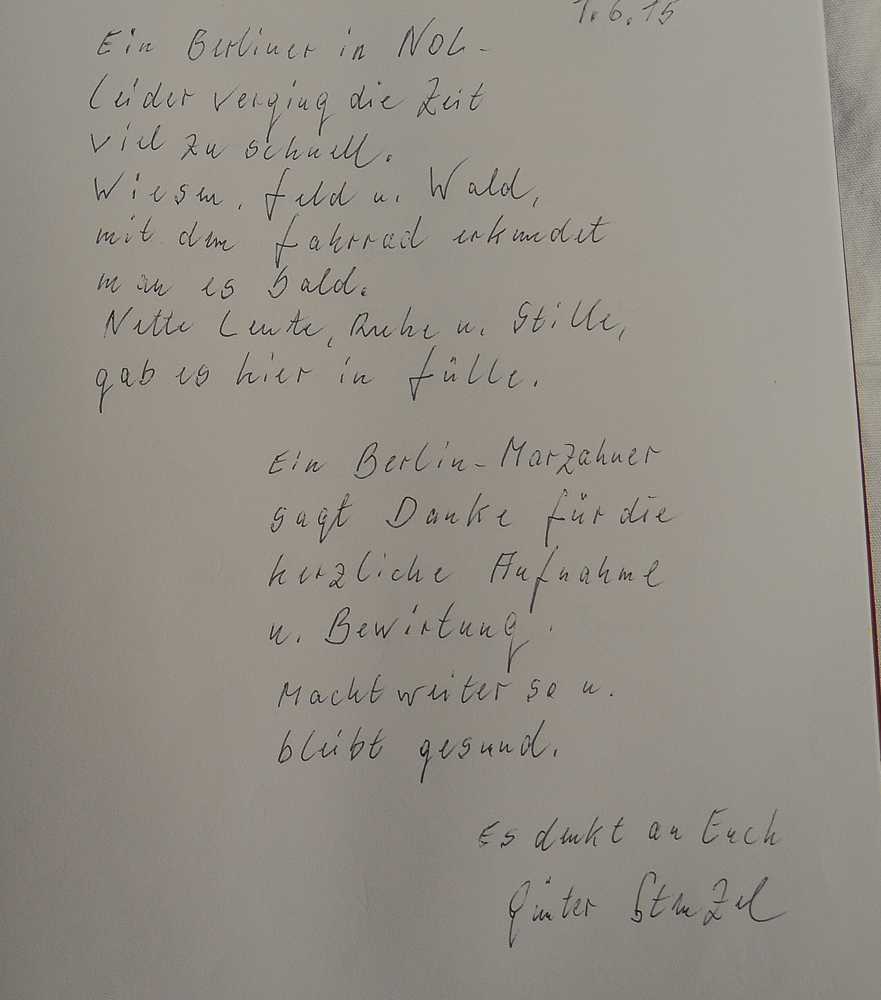 1.6.15
Ein Berliner in NOL -
Leider verging die Zeit
viel zu schnell.
Wiesen, Feld u. Wald,
mit dem Fahrrad erkundet
man es bald.
Nette Leute, Ruhe u. Stille,
gab es hier in Fülle.
Ein Berlin-Marzahner
sagt Danke für die
herzliche Aufnahme
u. Bewirtung.
Macht weiter so u.
bleibt gesund.
Es denkt an Euch
Günter